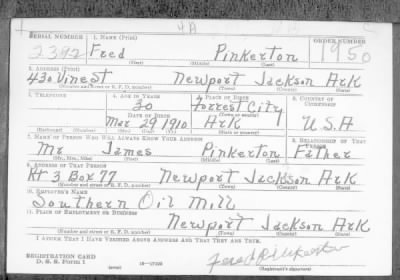 4A
SERIAL NUMBER 1. NAME (Print) ORDER NUMBER
2392 Fred Pinkerton 1950
(First) (Middle) (Last)
2. ADDRESS (Print)
430 Vine St Newport Jackson Ark
(Number and street or R. F. D. number) (Town) (County) (State)
3. TELEPHONE 4. AGE IN YEARS 5. PLACE OF BIRTH 6. COUNTRY OF CITIZENSHIP
30 Forrest City
DATE OF BIRTH (Town or county)
Mar 29 1910 Ark U.S.A
(Exchange) (Number) (Mo.) (Day) (Yr.) (State or country)
7. NAME OF PERSON WHO WILL ALWAYS KNOW YOUR ADDRESS RELATIONSHIP OF THAT PERSON
Mr James Pinkerton Father
(Mr., Mrs., Miss) (First) (Middle) (Last)
9. ADDRESS OF THAT PERSON
Rt 3 Box 77 Newport Jackson Ark
(Number and street or R. F. D. number) (Town) (County) (State)
10. EMPLOYER'S NAME
Southern Oil Mill
11. PLACE OF EMPLOYMENT OR BUSINESS
Newport Jackson Ark
(Number and street or R. F. D. number) (Town) (County) (State)
I AFFIRM THAT I HAVE VERIFIED ABOVE ANSWERS AND THAT THEY ARE TRUE.
REGISTRATION CARD
D. S. S. Form 1 16—17105 Fred Pinkerton
(Registrant's signature)